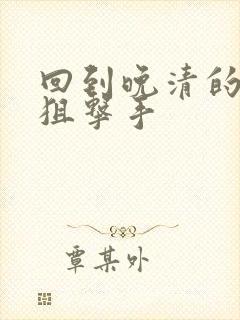 回到晚清的
狙擊手
覃某外